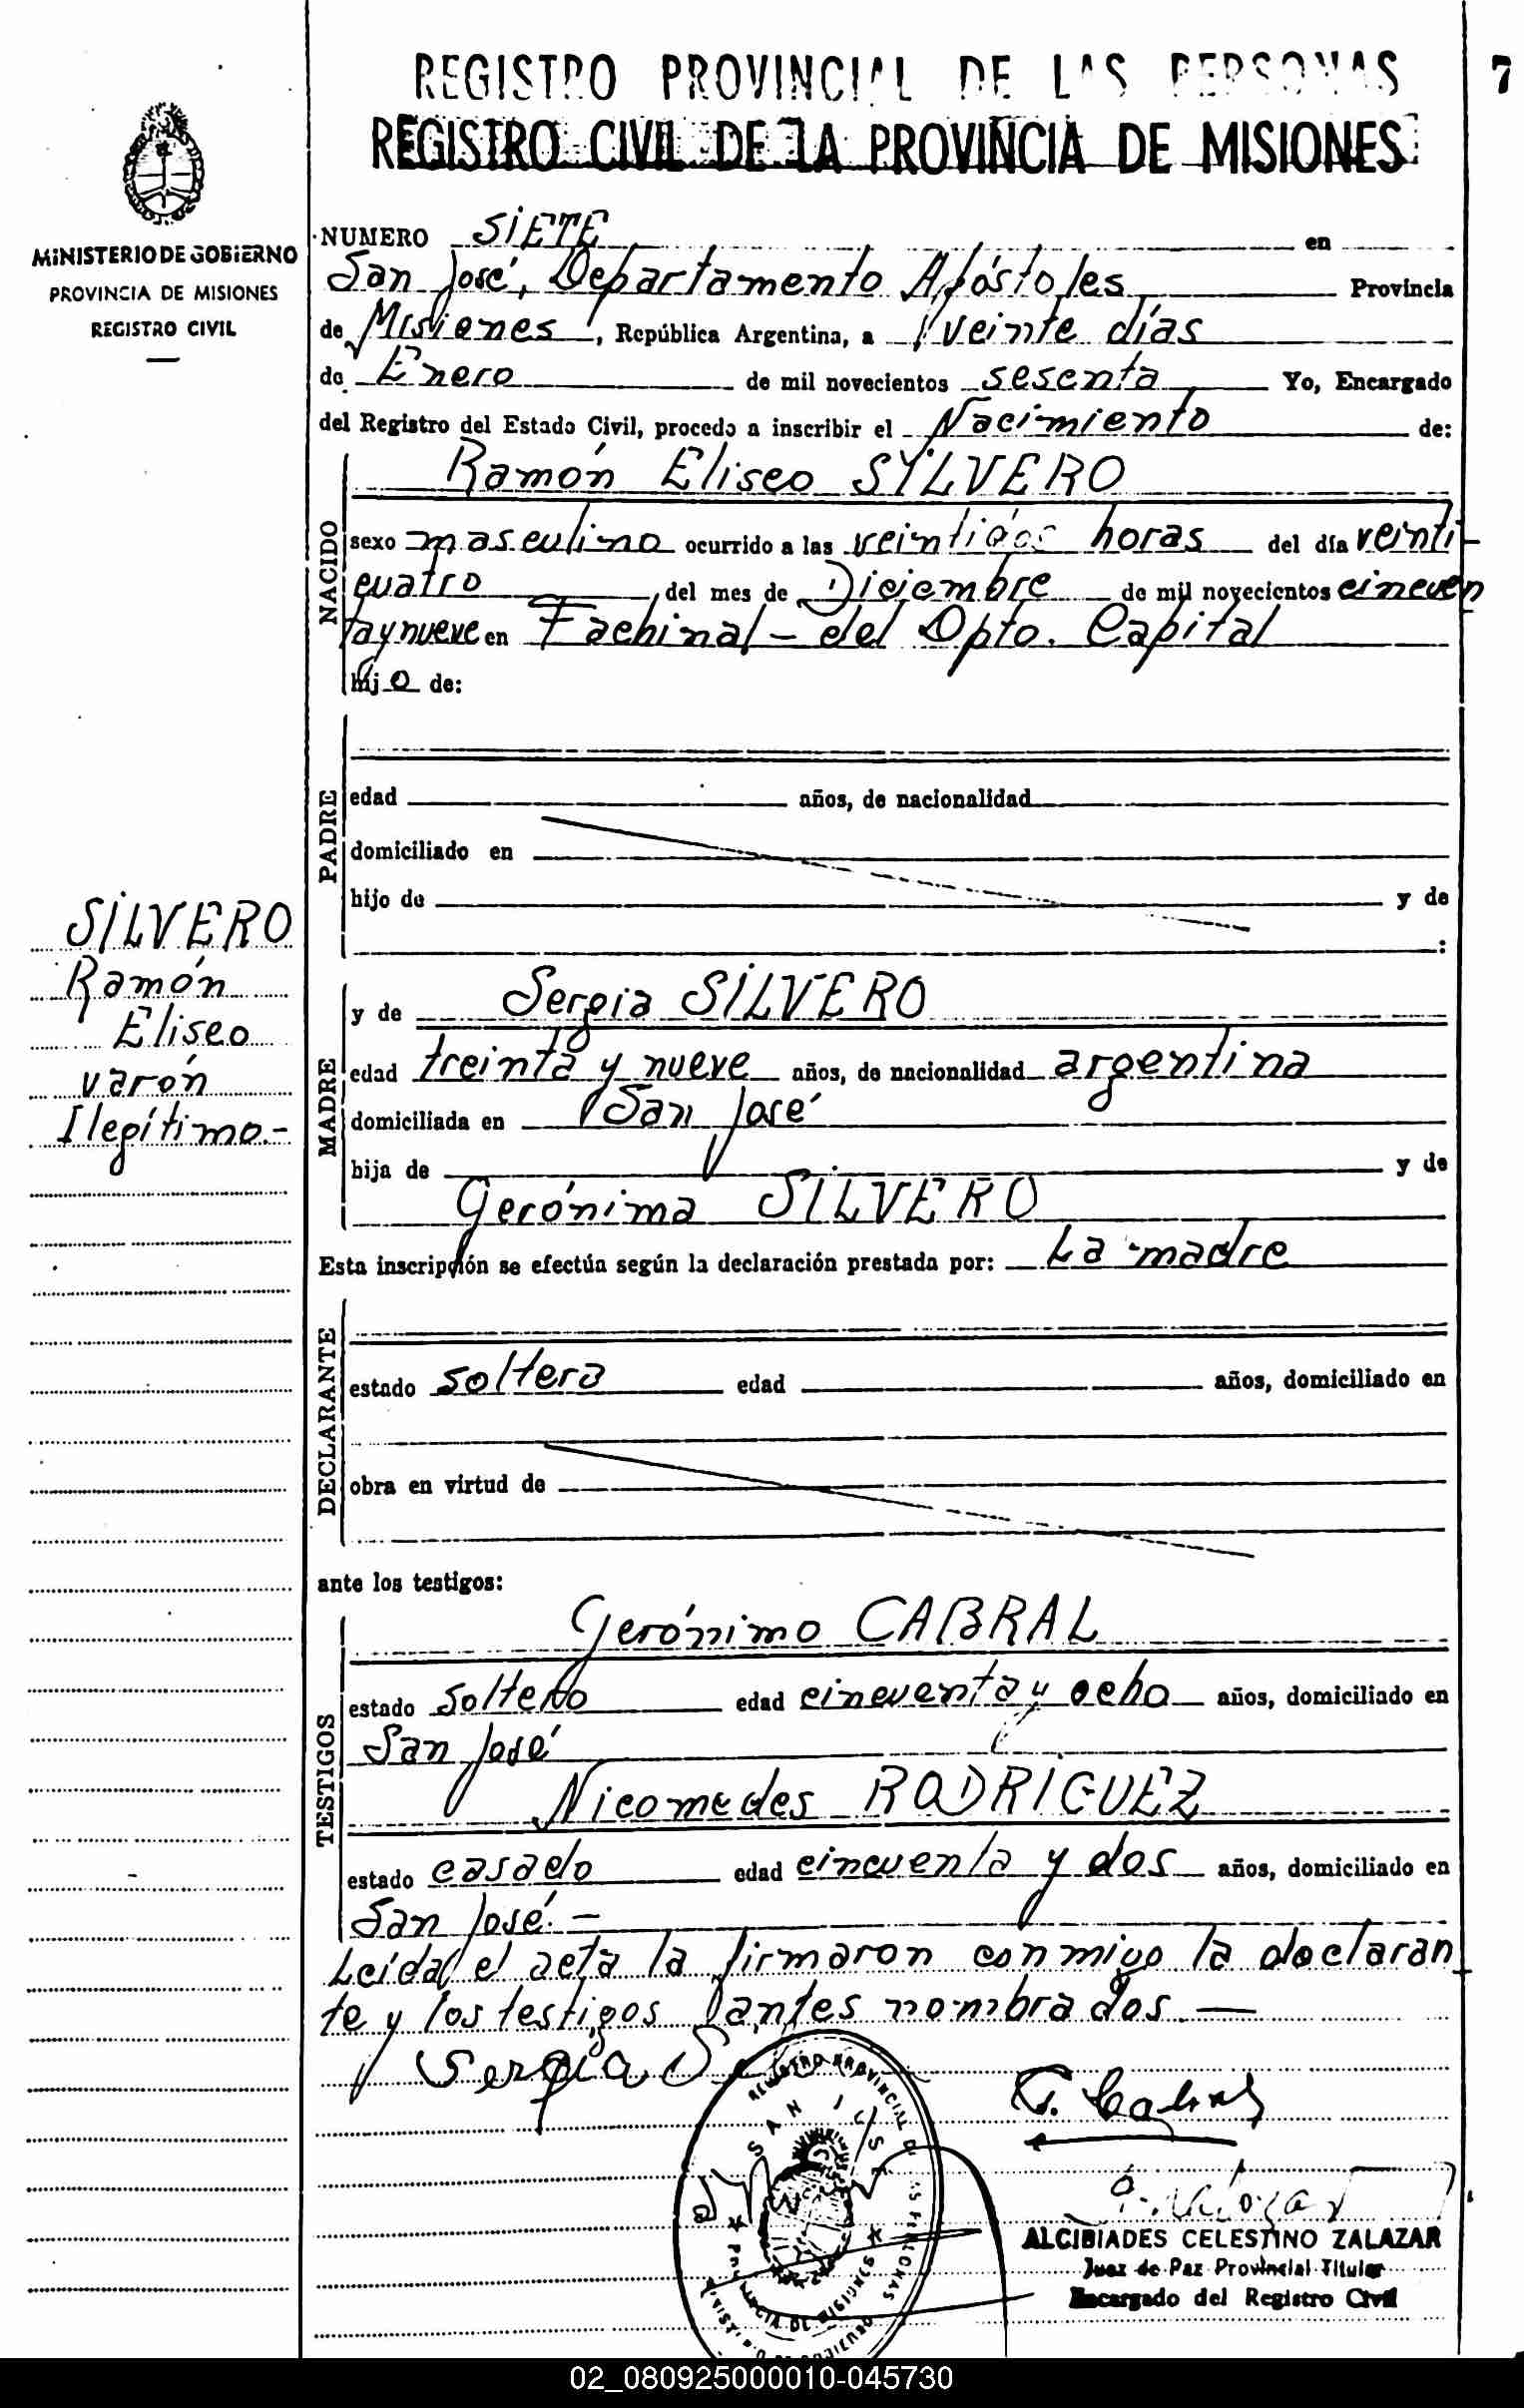 REGISTRO PROVINCIAL DE LAS PERSONAS
7
REGISTRO CIVIL DE LA PROVINCIA DE MISIONES
MINISTERIO DE GOBIERNO
PROVINCIA DE MISIONES
REGISTRO CIVIL
NUMERO SIETE en
San José, Departamento Apóstoles Provincia
de Misiones, República Argentina, a veinte días
de Enero de mil novecientos sesenta Yo, Encargado
del Registro del Estado Civil, procedo a inscribir el Nacimiento de:
NACIDO
Ramón Eliseo SILVERO
sexo masculino ocurrido a las veintidós horas del día veinti
cuatro del mes de Diciembre de mil novecientos cincuen
ta y nueve en Fachinal - del Dpto. Capital
hijo de:
PADRE
edad años, de nacionalidad
domiciliado en
hijo de y de
:
SILVERO
Ramón
Eliseo
varón
Ilegítimo.-
MADRE
y de Sergia SILVERO
edad treinta y nueve años, de nacionalidad argentina
domiciliada en San José
hija de y de
Gerónima SILVERO
Esta inscripción se efectúa según la declaración prestada por: La madre
DECLARANTE
estado soltera edad años, domiciliado en
obra en virtud de
ante los testigos:
TESTIGOS
Gerónimo CABRAL
estado soltero edad cincuenta y ocho años, domiciliado en
San José
Nicomedes RODRIGUEZ
estado casado edad cincuenta y dos años, domiciliado en
San José.-
Leída el acta la firmaron conmigo la declaran
te y los testigos antes nombrados.—
Sergia
G. Cabral
REGISTRO PROVINCIAL DE LAS PERSONAS
SAN JOSE
PROVINCIA DE MISIONES
ALCIBIADES CELESTINO ZALAZAR
Juez de Paz Provincial Titular
Encargado del Registro Civil
02_080925000010-045730